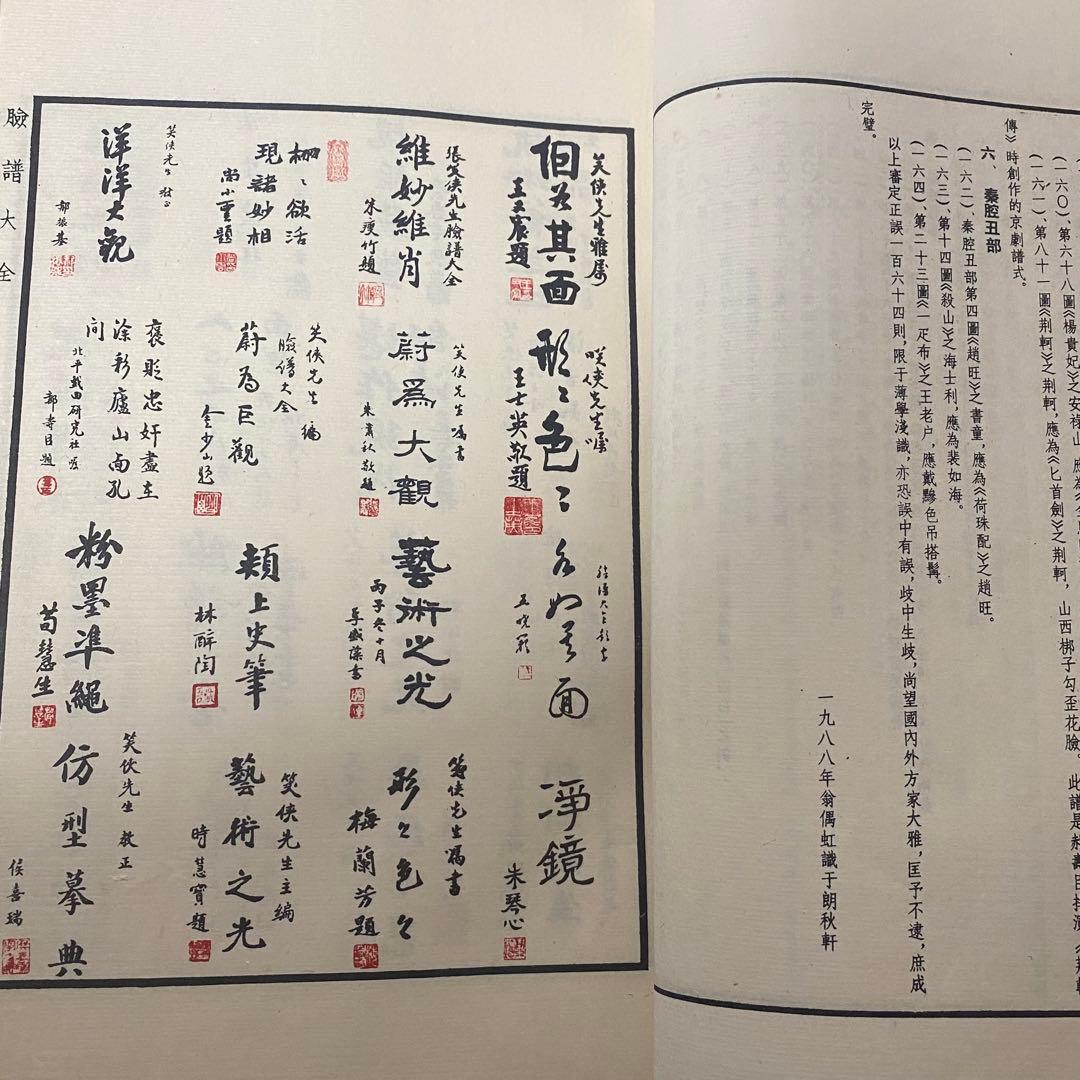 (一六〇)、第六十八圖《楊貴妃》之安祿山,應為《
(一六一)、第八十一圖《荆軻》之荆軻,應為《匕首劍》之荆軻,山西梆子勾歪花臉。此譜是郝壽臣
傳》時創作的京劇譜式。
六、秦腔丑部
(一六二)、秦腔丑部第四圖《趙旺》之書童,應為《荷珠配》之趙旺。
(一六三)、第十四圖《殺山》之海士利,應為裴如海。
(一六四)、第二十三圖《一疋布》之王老户,應戴黲色吊搭髯。
以上審定正誤一百六十四則,限于薄學淺識,亦恐誤中有誤,歧中生歧,尚望國內外方家大雅,匡予不逮,庶成
完璧。
一九八八年翁偶虹識于朗秋軒
笑俠先生雅屬
個如其面
王又宸題
笑俠先生囑
形〻色〻
王士英敬題
各如其面
淨鏡
朱琴心
張笑俠先生臉譜大全
維妙維肖
朱瘦竹題
笑俠先生囑書
蔚為大觀
朱肅秋敬題
藝術之光
丙子冬十月
李盛藻書
笑俠先生囑書
形〻色〻
梅蘭芳題
栩〻欲活
現諸妙相
尚小雲題
笑俠先生編
臉譜大全
蔚為巨觀
金少山題
頰上史筆
林醉陶
笑俠先生主編
藝術之光
時慧寶題
笑俠先生
洋洋大觀
郭振基
褒貶忠奸盡在
塗彩廬山面孔
間
北平戲曲研究社
題
粉墨準繩
荀慧生
笑俠先生教正
仿型摹典
侯喜瑞
臉譜大全